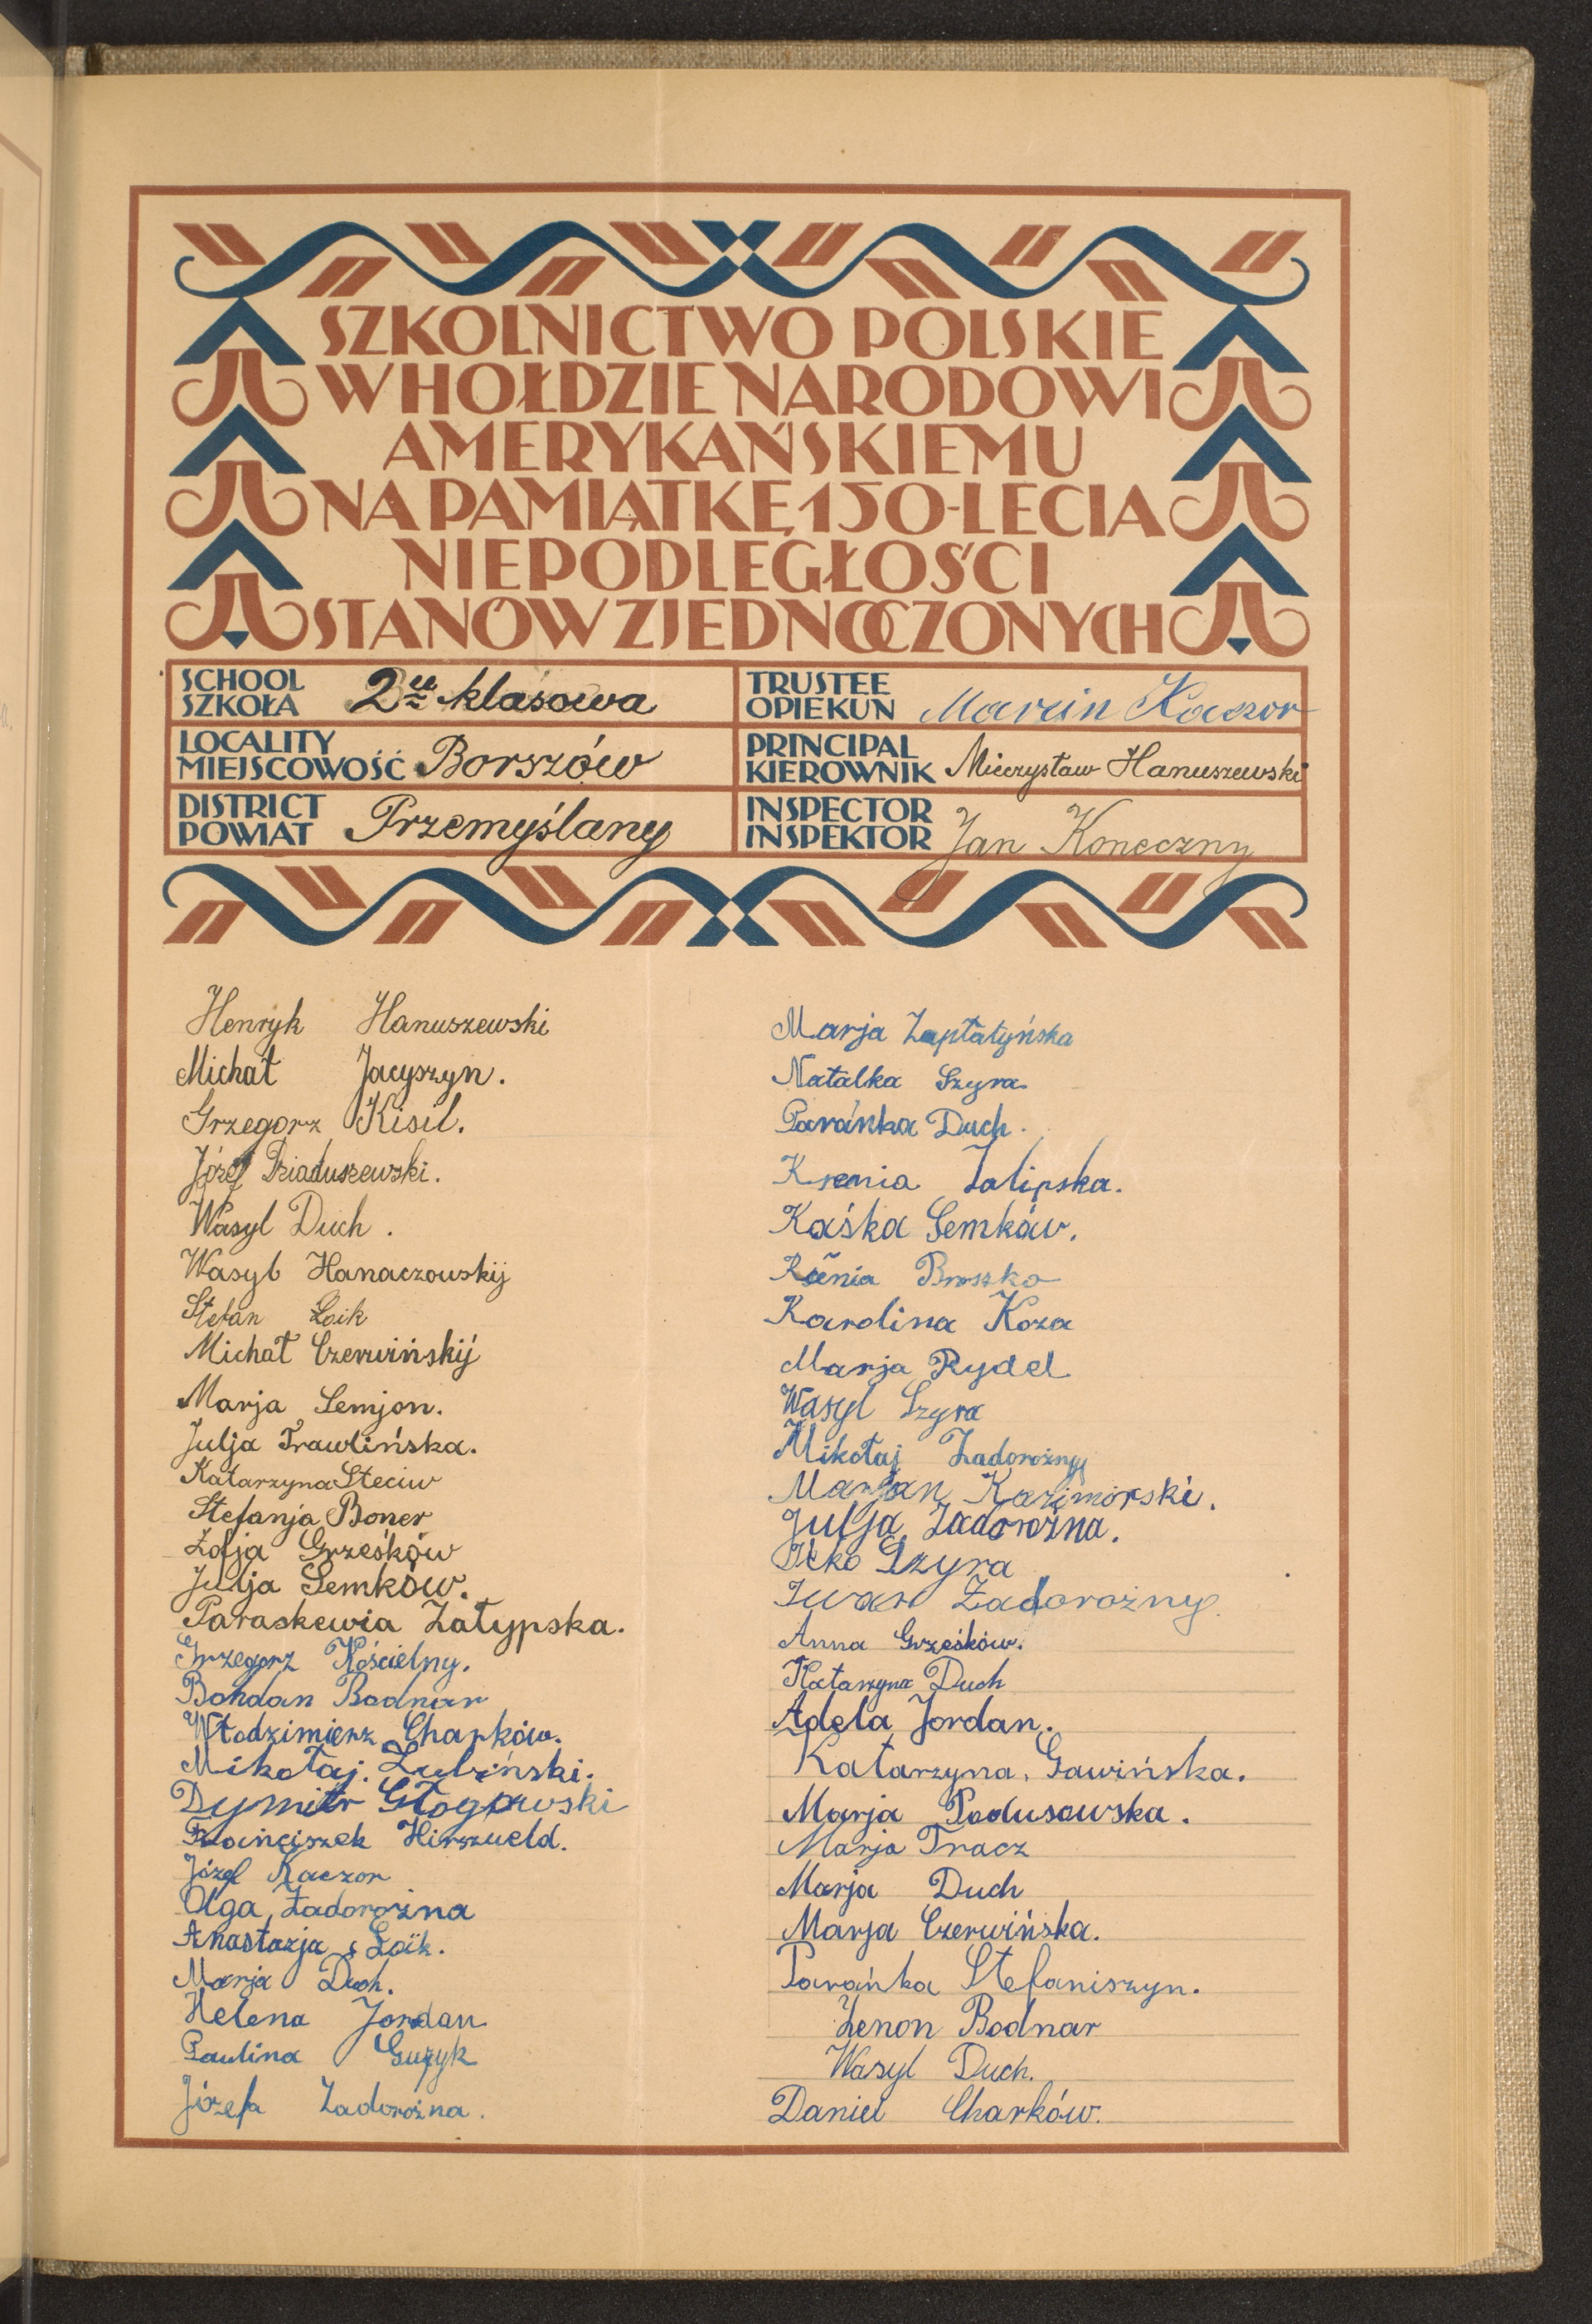 SZKOLNICTWO POLSKIE
W HOŁDZIE NARODOWI
AMERYKAŃSKIEMU
NA PAMIĄTKĘ 150-LECIA
NIEPODLEGŁOŚCI
STANÓW ZJEDNOCZONYCH
SCHOOL
SZKOŁA 2u klasowa
TRUSTEE
OPIEKUN Marcin Kaczor
LOCALITY
MIEJSCOWOŚĆ Borszów
PRINCIPAL
KIEROWNIK Mieczysław Hanuszewski
DISTRICT
POWIAT Przemyślany
INSPECTOR
INSPEKTOR Jan Koneczny
Henryk Hanuszewski
Michał Jacyszyn.
Grzegorz Kisil.
Józef Dziaduszewski.
Wasyl Duch.
Wasyl Hanaczowskij
Stefan Łoik
Michał Czerwińskij
Marja Semjon.
Julja Trawlińska.
Katarzyna Steciw
Stefanja Boner
Zofja Grześków
Julja Semków.
Paraskewia Załypska.
Grzegorz Kościelny.
Bohdan Bodnar
Włodzimierz Charków.
Mikołaj. Lubiński.
Dymitr Głogowski
Franciszek Hirszueld.
Józef Kaczor
Olga Zadorożna
Anastazja Łoik.
Marja Duch.
Helena Jordan
Paulina Guzyk
Józefa Zadorożna.
Marja Zapłatyńska
Natalka Szyra
Parańka Duch.
Ksenia Zalipska.
Kaśka Semków.
Ksenia Broszko
Karolina Koza
Marja Rydel
Wasyl Szyra
Mikołaj Zadorożnyj
Marjan Kazimorski.
Julja Zadorożna.
Ilko Szyra
Iwan Zadorożny.
Anna Grześków.
Katarzyna Duch
Adela Jordan.
Katarzyna. Gawińska.
Marja Podusowska.
Marja Tracz
Marja Duch
Marja Czerwińska.
Parańka Stefaniszyn.
Zenon Bodnar
Wasyl Duch.
Daniel Charków.